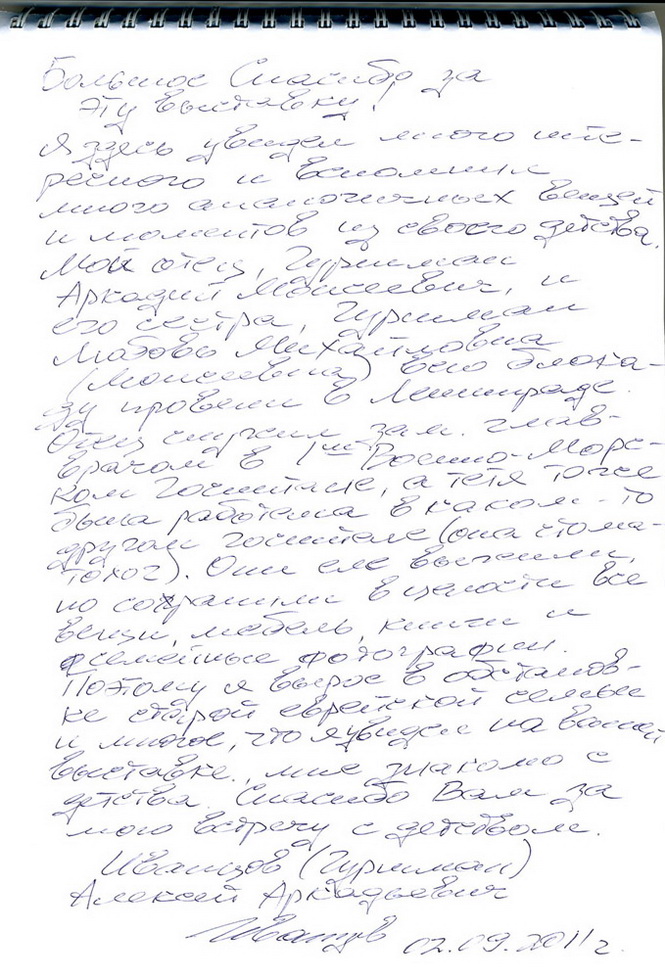 Большое Спасибо за
эту выставку!
Я здесь увидел много инте-
ресного и вспомнил
много аналогичных вещей
и моментов из своего детства.
Мой отец, Гуриман
Аркадий Моисеевич, и
его сестра, Гуриман
Любовь Михайловна
(Моисеевна) всю блока-
ду провели в Ленинграде.
Отец служил зам. глав-
врачом в 1ом Военно-Морс-
ком Госпитале, а тётя тоже
была работала в каком-то
другом госпитале (она стома-
толог). Они еле выжили,
но сохранили в целости все
вещи, мебель, книги и
семейные фотографии.
Поэтому я вырос в обстанов-
ке старой еврейской семьи
и многое, что я увидел на вашей
выставке, мне знакомо с
детства. Спасибо Вам за
мою встречу с детством.
Иванцов (Гуриман)
Алексей Аркадьевич
Иванцов 02.09.2011 г.